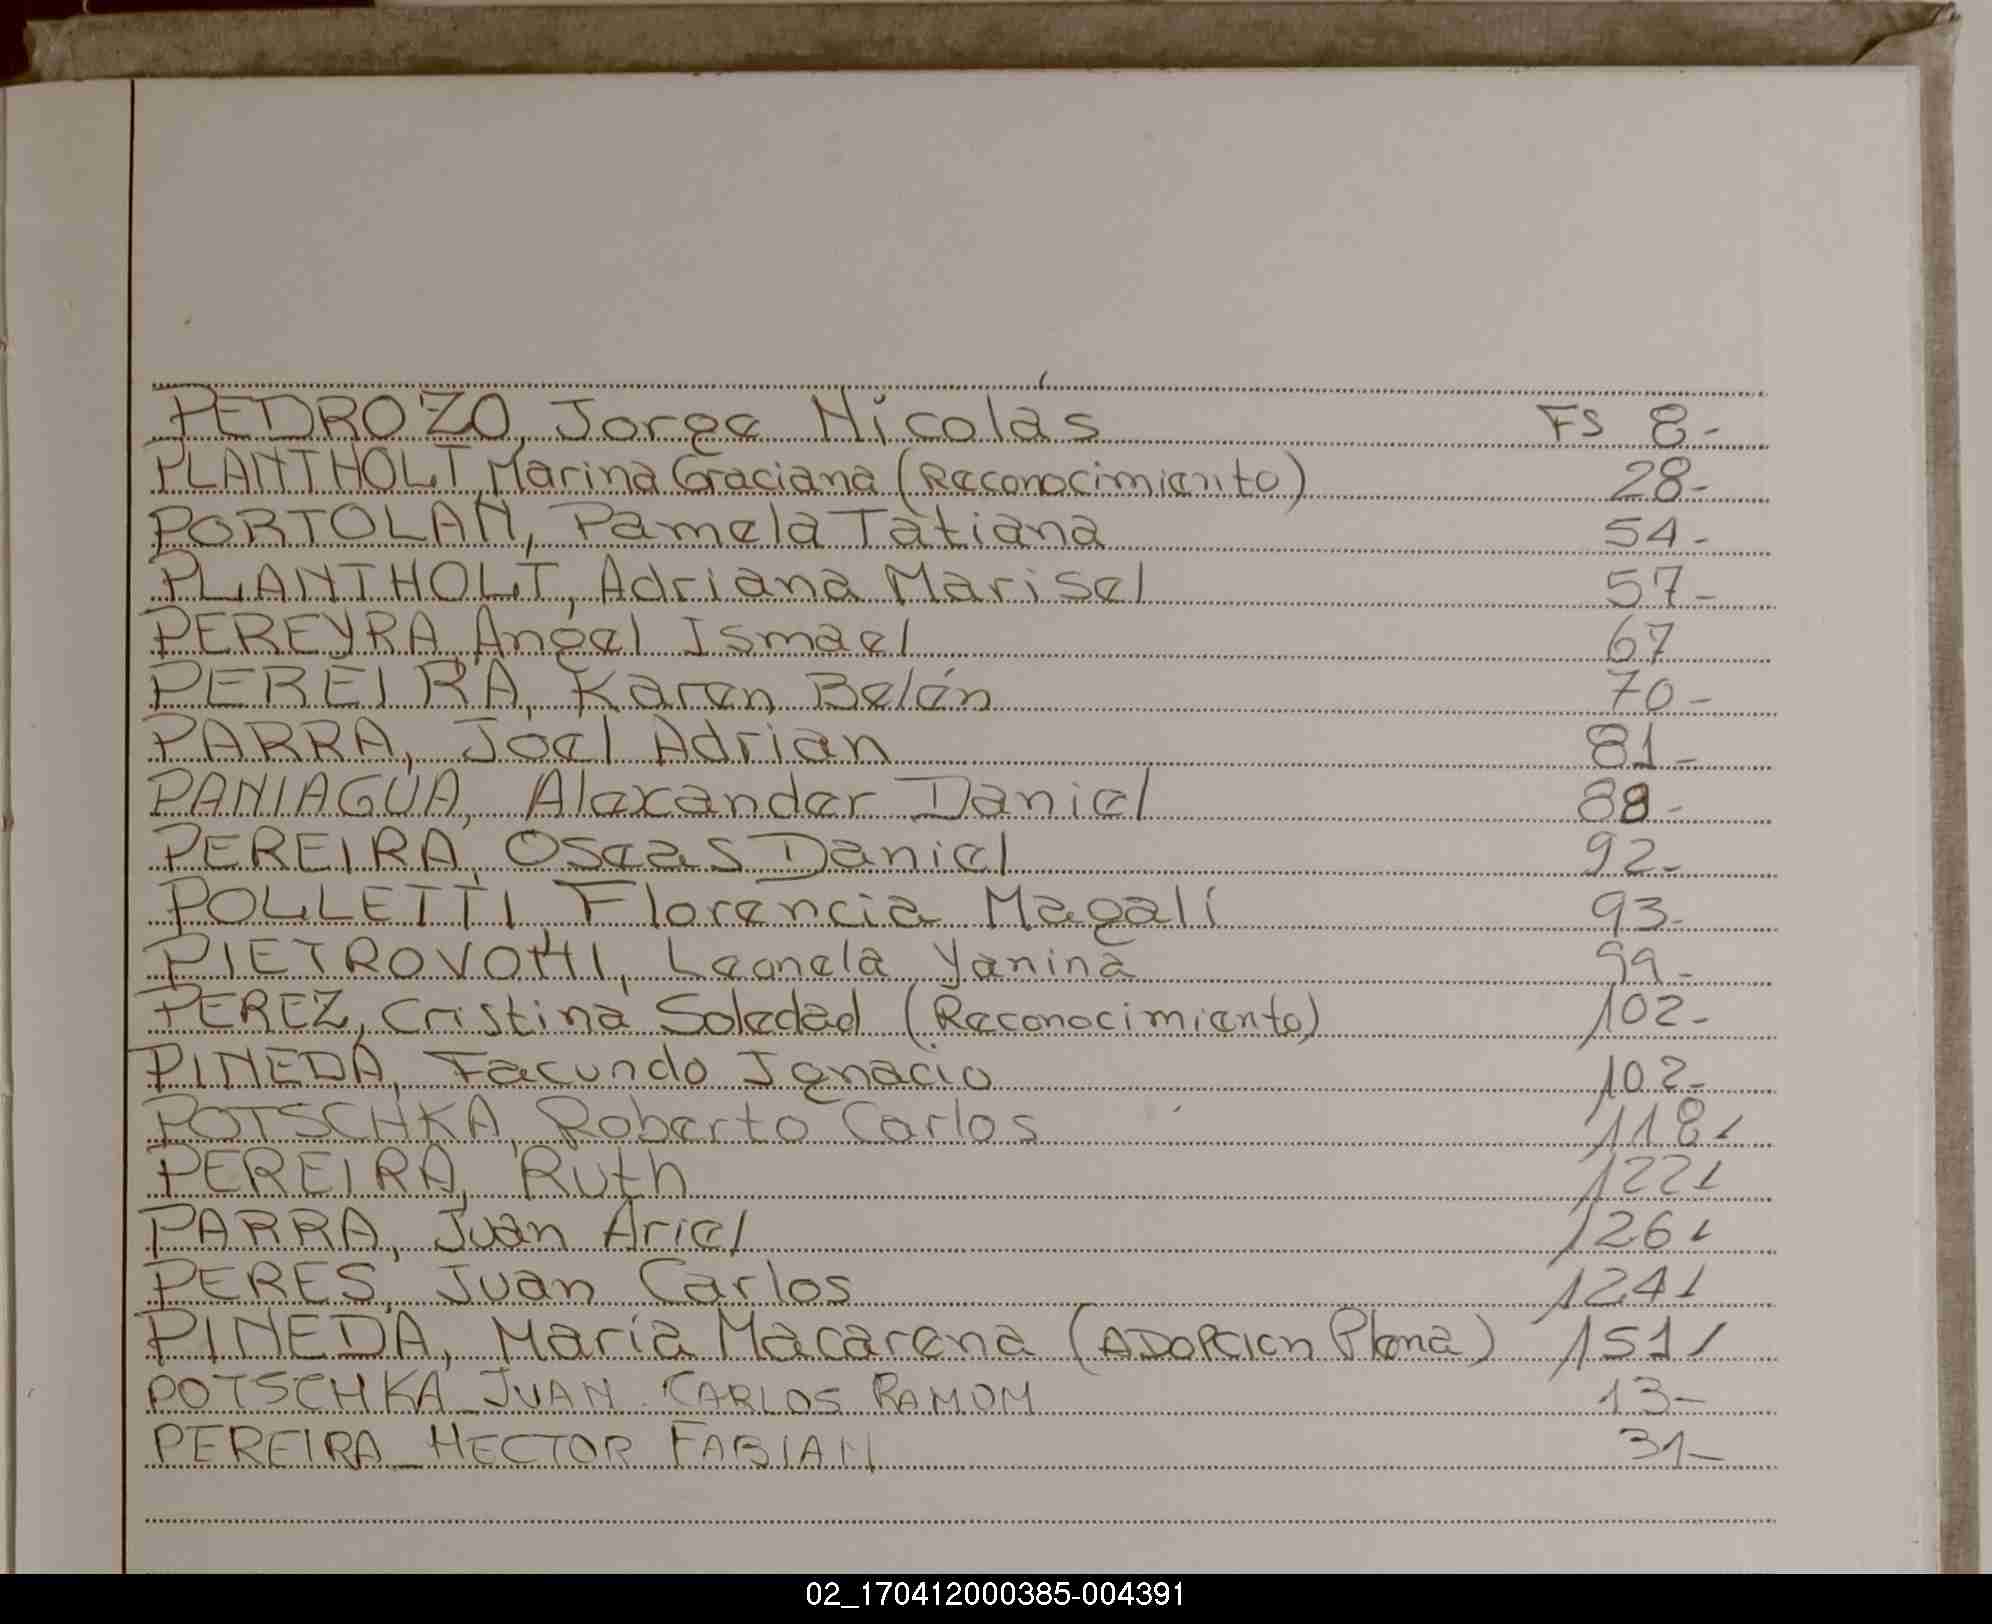 PEDROZO, Jorge Nicolás FS 8-
PLANTHOLT, Marina Graciana (Reconocimiento) 28-
PORTOLAN, Pamela Tatiana 54-
PLANTHOLT, Adriana Marisel 57-
PEREYRA, Angel Ismael 67
PEREIRA, Karen Belén 70-
PARRA, Joel Adrian 81-
PANIAGUA, Alexander Daniel 88-
PEREIRA, Oseas Daniel 92-
POLLETTI, Florencia Magalí 93-
PIETROVOHI, Leonela Yanina 99-
PEREZ, Cristina Soledad (Reconocimiento) 102-
PINEDA, Facundo Ignacio 102-
POTSCHKA, Roberto Carlos 118-
PEREIRA, Ruth 122-
PARRA, Juan Ariel 126-
PERES, Juan Carlos 124-
PINEDA, María Macarena (ADOPCIon Plena) 151-
POTSCHKA_JUAN CARLOS RAMON 13-
PEREIRA_HECTOR FABIAN 31-
02_170412000385-004391